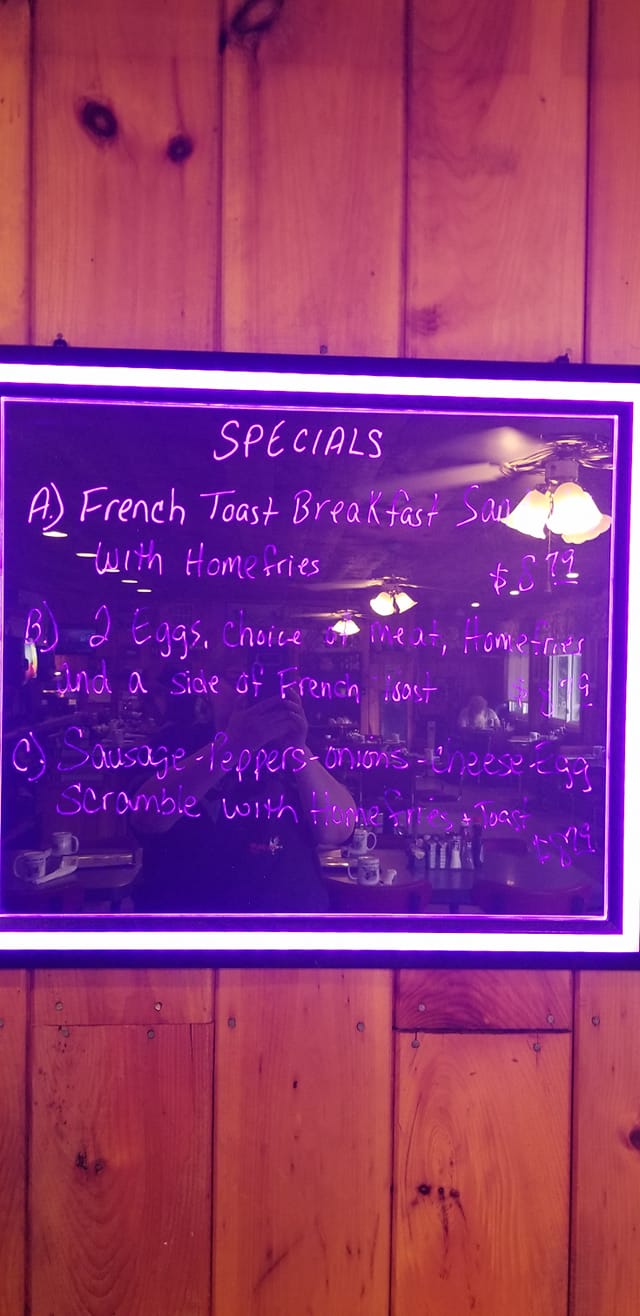 SPECIALS
A.) French Toast Breakfast
with Homefries
$ 8.79
B.) 2 Eggs, choice of meat, Homefries
and a side of French Toast
C.) Sausage-Peppers-onions-cheese-Egg
Scramble with Homefries + Toast